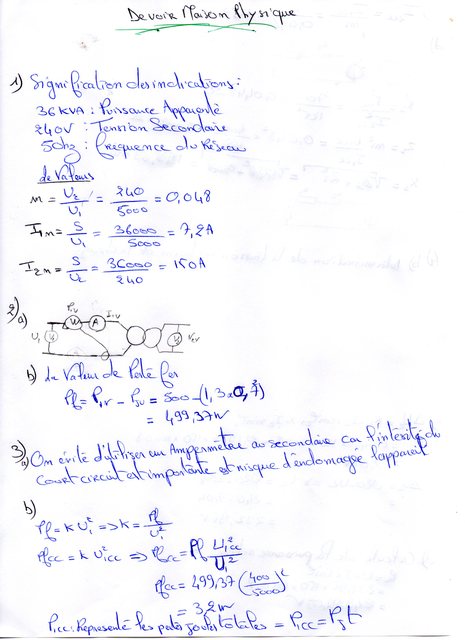 Devoir Maison Physique
1) Signification des indications :
36 KVA : Puissance Apparenté
240V : Tension Secondaire
50hz : frequence du Réseau
de Valeurs
m = U2/U1 = 240/5000 = 0,048
I1n = S/U1 = 36000/5000 = 7,2A
I2n = S/U2 = 36000/240 = 150A
2) a)
P1V I1V
U1 V W A V
b) la Valeur de Perte fer
Pf = P1V - PJV = 500 - (1,3 x 0,7²)
= 499,37W
3)
a) On évite d'utiliser un Ampermètre au secondaire car l'intensité du
court circuit est importante et risque d'endomagée l'appareil
b)
Pf = K U1² => K = Pf/U1²
Pfcc = K U1cc² => Pfcc = Pf U1cc²/U1²
Pfcc = 499,37 (400/5000)²
= 3,2W
P1cc : Represente les pertes joules totales = P1cc = PJt